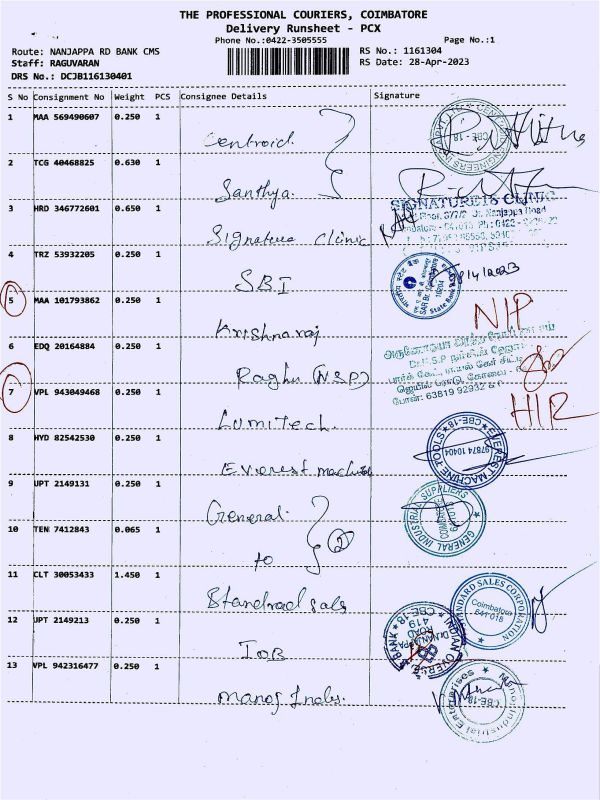 THE PROFESSIONAL COURIERS, COIMBATORE
Delivery Runsheet - PCX
Phone No.:0422-3505555
Page No.:1
Route: NANJAPPA RD BANK CMS
RS No.: 1161304
Staff: RAGUVARAN
RS Date: 28-Apr-2023
DRS No.: DCJB116130401
S No Consignment No Weight PCS Consignee Details Signature
1 MAA 569490607 0.250 1 Centroid
CBE-18
2 TCG 40468825 0.630 1 Santhya
3 HRD 346772601 0.650 1 Signature Clinic
SIGNATURE18 CLINIC
4 TRZ 53932205 0.250 1 SBI
5 MAA 101793862 0.250 1 Krishnaraj
NIP
6 EDQ 20164884 0.250 1 Raghu (NSP)
போன்: 63819 92932
7 VPL 943049468 0.250 1 Lumitech
HIR
8 HYD 82542530 0.250 1 Everest machine
EVEREST MACHINE TOOLS
CBE-18
97874 10404
9 UPT 2149131 0.250 1 General
GENERAL INDUSTRIAL SUPPLIERS
COIMBATORE
641018
10 TEN 7412843 0.065 1 to
2
11 CLT 30053433 1.450 1 Standrad sals
STANDARD SALES CORPORATION
Coimbatore
641 018
12 UPT 2149213 0.250 1 IOB
INDIAN OVERSEAS BANK
Dr.NANJAPPA
ROAD
419
CBE-18
13 VPL 942316477 0.250 1 manoj Inds.
Manoj Industrial Enterprises
CBE-18